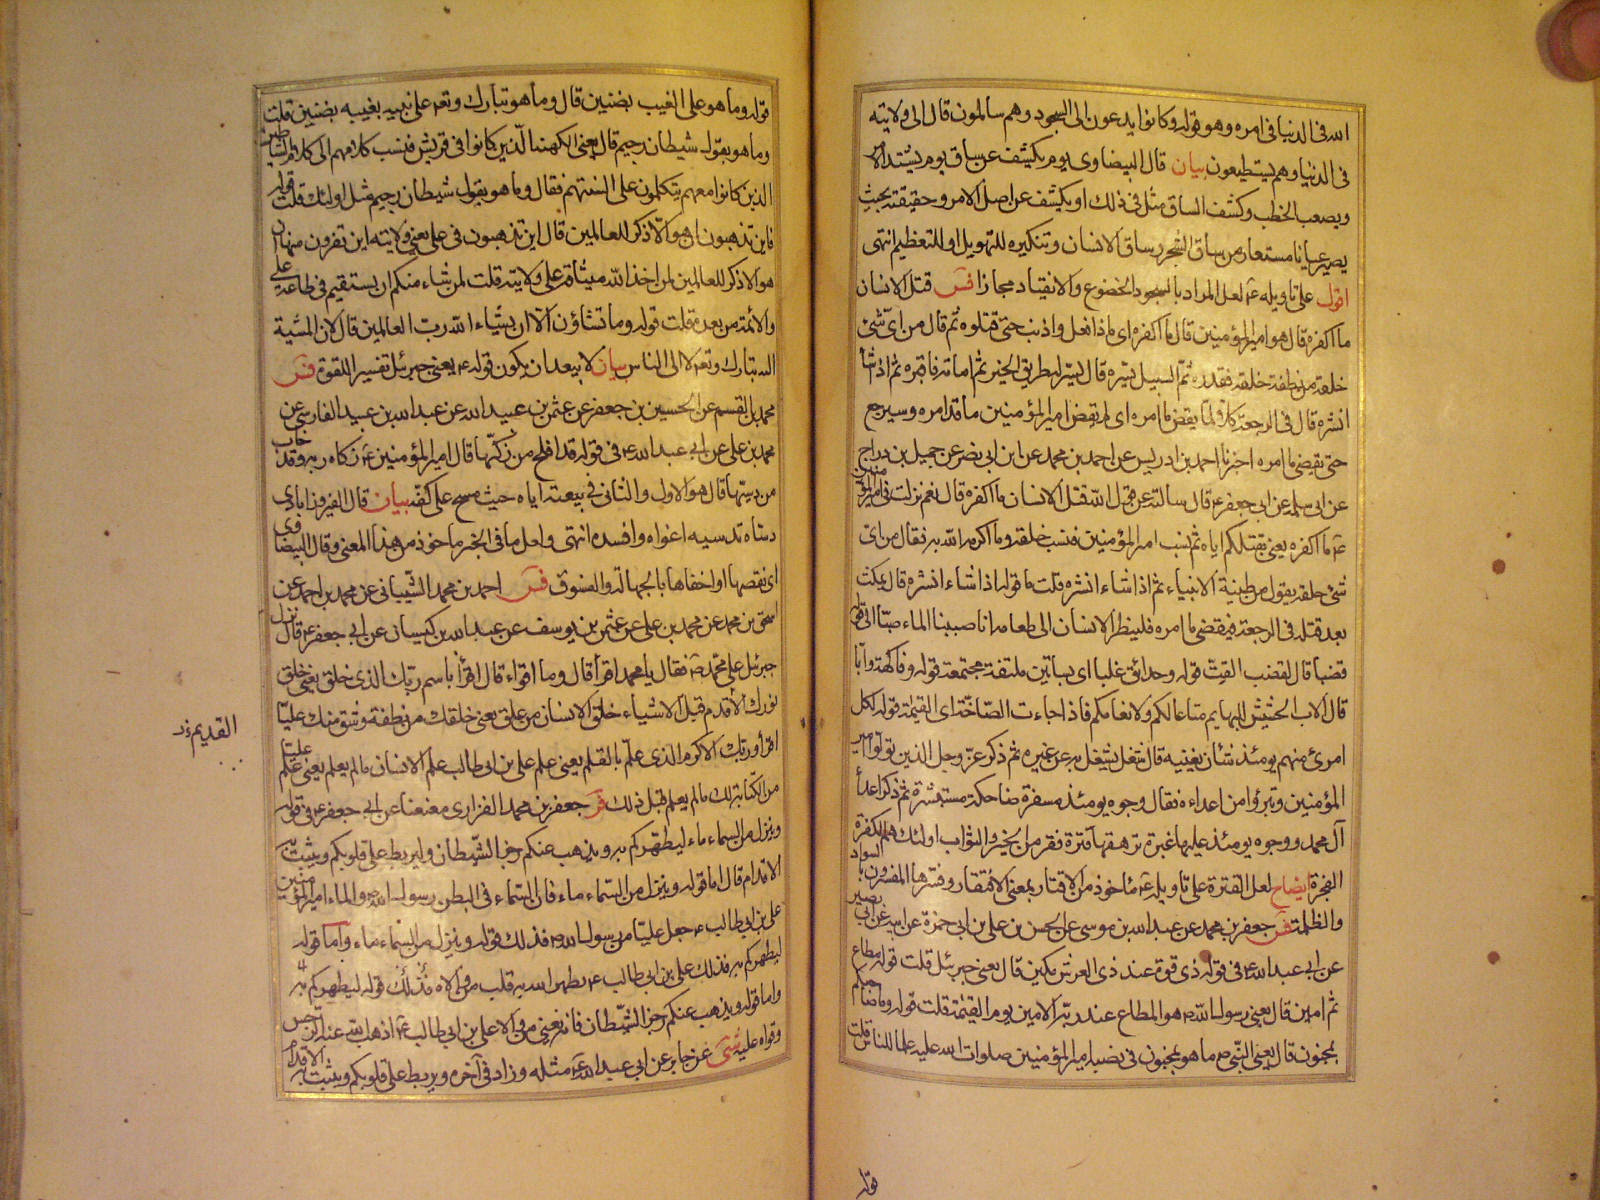 الله فى الدنيا فى امره وهو قوله وكانوا يدعون الى السجود وهم سالمون قال الى ولايته
فى الدنيا وهم يستطيعون بيان قال البيضاوى يوم يكشف عن ساق يوم يشتد الامر
ويصعب الخطب وكشف الساق مثل فى ذلك او يكشف عن اصل الامر وحقيقته بحيث
يصير عيانا مستعار من ساق الشجر وساق الانسان وتنكيره للتهويل او للتعظيم انتهى
اقول على تاويله ع لعل المراد بالسجود الخضوع والانقياد مجازا فس قتل الانسان
ما اكفره قال هو امير المؤمنين قال ما اكفره اى ماذا فعل واذنب حتى قتلوه ثم قال من اى شئ
خلقه من نطفة خلقه فقدره ثم السبيل يسره قال يسر له طريق الخير ثم اماته فاقبره ثم اذا شاء
انشره قال فى الرجعة كلا لما يقض ما امره اى لم يقض امير المؤمنين ما قد امره وسيرجع
حتى يقضى ما امره اخبرنا احمد بن ادريس عن احمد بن محمد عن ابن ابى نصر عن جميل بن دراج
عن ابى سلمة عن ابى جعفر ع قال سالته عن قول الله قتل الانسان ما اكفره قال نعم نزلت فى امير المؤمنين
ع ما اكفره يعنى بقتلكم اياه ثم نسب امير المؤمنين فنسب خلقه وما اكرمه الله به فقال من اى
شئ خلقه يقول من طينة الانبياء ثم اذا شاء انشره قلت ما قوله اذا شاء انشره قال يمكث
بعد قتله فى الرجعة فيقضى ما امره فلينظر الانسان الى طعامه انا صببنا الماء صبا الى قوله
قضبا قال القضب القت قوله وحدائق غلبا اى بساتين ملتفة مجتمعة قوله وفاكهة وابا
قال الاب الحشيش للبهايم متاعا لكم ولانعامكم فاذا جاءت الصاخة اى القيمة قوله لكل
امرئ منهم يومئذ شأن يغنيه قال شغل يشغل به عن غيره ثم ذكر عز وجل الذين تولوا امير
المؤمنين وتبرؤا من اعداءه فقال وجوه يومئذ مسفرة ضاحكة مستبشرة ثم ذكر اعداء
آل محمد ووجوه يومئذ عليها غبرة ترهقها قترة فقر من الخير والثواب اولئك هم الكفرة
الفجرة ايضاح لعل القترة على تاويله ع مأخوذ من الاقتار بمعنى الافتقار وفسرها المفسرون بالسواد
والظلمة فس جعفر بن محمد عن عبد الله بن موسى عن الحسن بن على بن ابى حمزة عن ابيه عن ابى بصير
عن ابى عبد الله ع فى قوله ذى قوة عند ذى العرش مكين قال يعنى جبرئيل قلت قوله مطاع
ثم امين قال يعنى رسول الله ص هو المطاع عند ربه الامين يوم القيمة قلت قوله وما صاحبكم
بمجنون قال يعنى النبى ص ما هو بمجنون فى نصبه امير المؤمنين صلوات الله عليه علما للناس قلت
قوله
قوله وما هو على الغيب بضنين قال وما هو تبارك وتعه على نبيه بغيبه بضنين قلت
وما هو بقول شيطان رجيم قال يعنى الكهنة الذين كانوا فى قريش فنسب كلامهم الى كلام الشياطين
الذين كانوا معهم يتكلمون على السنتهم فقال وما هو بقول شيطان رجيم مثل اولئك قلت قوله
فاين تذهبون ان هو الا ذكر للعالمين قال اين تذهبون فى على يعنى ولايته اين تفرون منها ان
هو الا ذكر للعالمين لمن اخذ الله ميثاقه على ولايته قلت لمن شاء منكم ان يستقيم فى طاعة على
والائمة من بعده قلت قوله وما تشاؤن الا ان يشاء الله رب العالمين قال لان المشية
اليه تبارك وتعه لا الى الناس بيان لا يبعد ان يكون قوله ع يعنى جبرئيل تفسير اللقوة فس
محمد بن القسم عن الحسين بن جعفر عن عثمن بن عبيد الله عن عبد الله بن عبيد الفارسى عن
محمد بن على عن ابى عبد الله ع فى قوله قد افلح من زكيها قال امير المؤمنين ع زكاه ربه وقد خاب
من دسيها قال هو الاول والثانى فى بيعته اياه حيث مسح على كفه بيان قال الفيروزابادى
دساه تدسيه اغواه وافسده انتهى ولعل ما فى الخبر ماخوذ من هذا المعنى وقال البيضاوى
اى نقصها او اخفاها بالجهالة والفسوق فس احمد بن محمد الشيبانى عن محمد بن احمد عن
اسحق بن محمد عن محمد بن على عن عثمن بن يوسف عن عبد الله بن كيسان عن ابى جعفر ع قال نزل
جبرئيل على محمد ص فقال يا محمد اقرأ قال وما اقراء قال اقرأ باسم ربك الذى خلق يعنى خلق
نورك الاقدم قبل الاشياء خلق الانسان من علق يعنى خلقك من نطفة وشق منك عليا
القديم خ
اقرأ وربك الاكرم الذى علم بالقلم يعنى علم على بن ابى طالب علم الانسان ما لم يعلم يعنى علم عليا
من الكتابة لك ما لم يعلم قبل ذلك فر جعفر بن محمد الفزارى معنعنا عن ابى جعفر ع فى قوله
وينزل من السماء ماء ليطهركم به ويذهب عنكم رجز الشيطان وليربط على قلوبكم ويثبت به
الاقدام قال اما قوله وينزل من السماء ماء فان السماء فى البطن رسول الله ص والماء امير المؤمنين
على بن ابى طالب ع جعل عليا من رسول الله ص فذلك قوله وينزل من السماء ماء واما قوله
ليطهركم به فذلك على بن ابى طالب ع يطهر الله به قلب من والاه فذلك قوله ليطهركم به
واما قوله ويذهب عنكم رجز الشيطان فانه يعنى من والا على بن ابى طالب ع اذهب الله عنه الرجس
وقواه عليه شى عن جابر عن ابى عبد الله ع مثله وزاد فى آخره ويربط على قلوبكم ويثبت به الاقدام